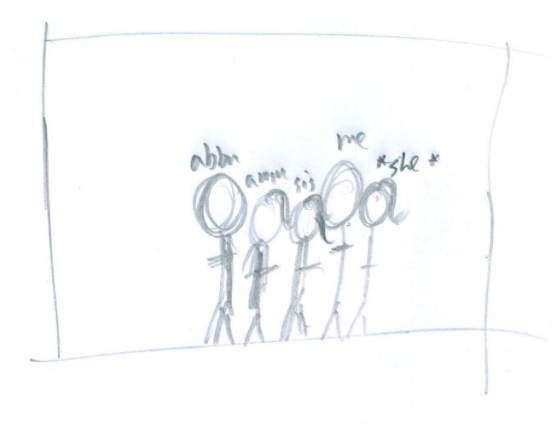 abbu
ammu
sis
me
*she*